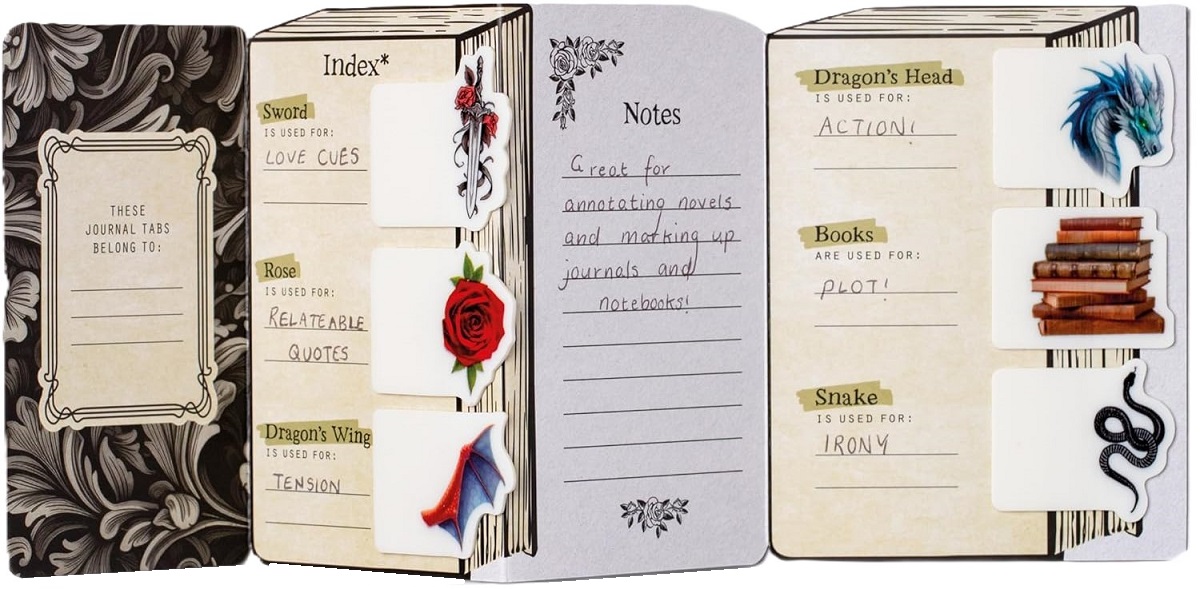 THESE
JOURNAL TABS
BELONG TO:
Index*
Sword
IS USED FOR:
LOVE CUES
Rose
IS USED FOR:
RELATEABLE
QUOTES
Dragon's Wing
IS USED FOR:
TENSION
Notes
Great for
annotating novels
and marking up
journals and
notebooks!
Dragon's Head
IS USED FOR:
ACTION!
Books
ARE USED FOR:
PLOT!
Snake
IS USED FOR:
IRONY